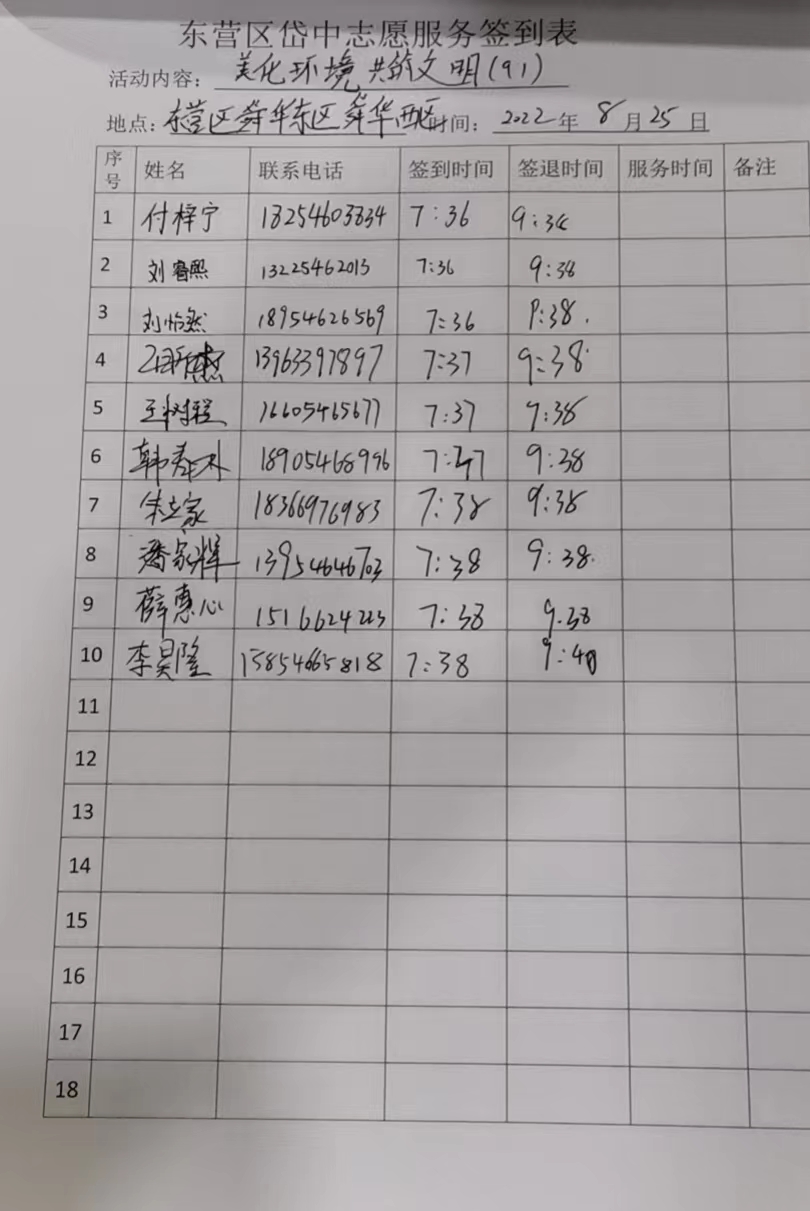 东营区岱中志愿服务签到表
活动内容：美化环境 共筑文明(91)
地点：东营区舜华东区 舜华西区 时间：2022年 8月25日
序号 姓名 联系电话 签到时间 签退时间 服务时间 备注
1 付梓宁 18254603834 7:36 9:38
2 刘睿熙 13225462013 7:36 9:38
3 刘怡然 18954626569 7:36 9:38.
4 13963397897 7:37 9:38
5 王树程 16605465677 7:37 9:38
6 韩春林 18905468996 9:38
7 朱立家 18366976983 7:38 9:38
8 潘家辉 13954646703 7:38 9:38.
9 薛惠心 1516624223 7:38 9.38
10 李昊隆 15854665818 7:38 9:40
11
12
13
14
15
16
17
18